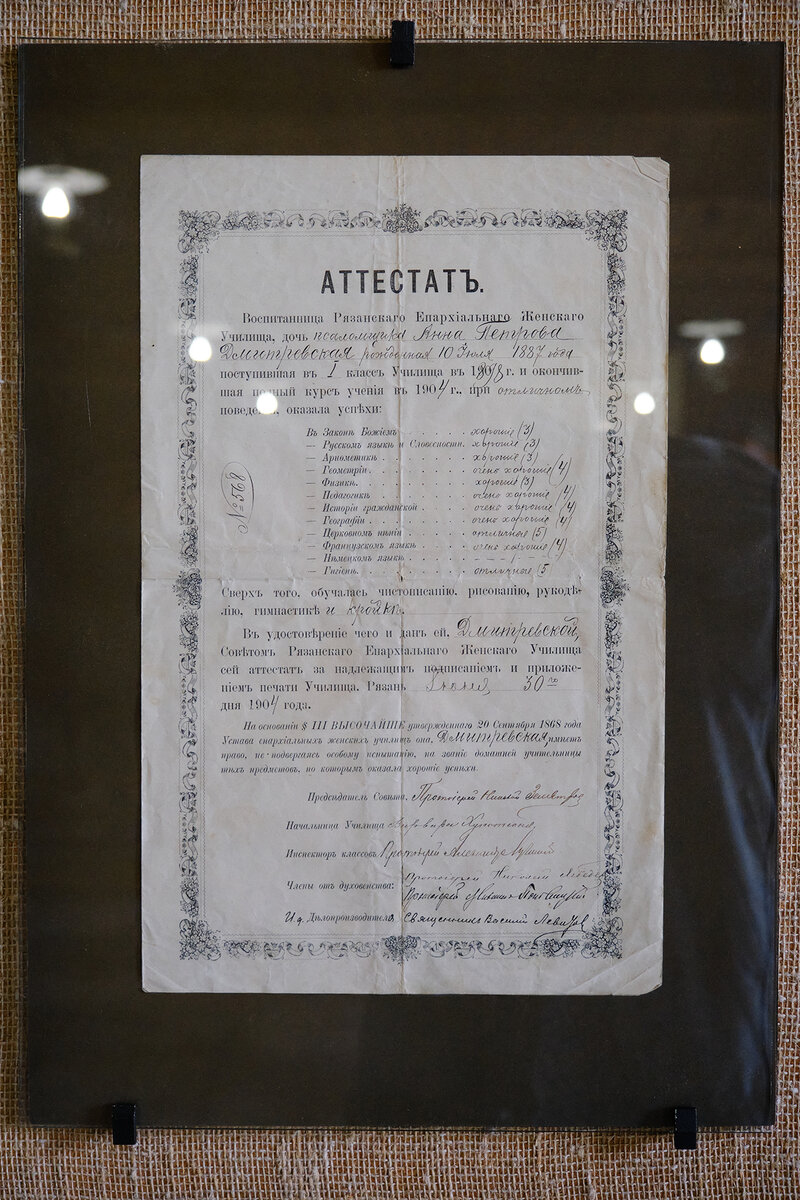 АТТЕСТАТЪ.
Воспитанница Рязанскаго Епархіальнаго Женскаго
Училища, дочь псаломщика Анна Петрова
Дмитревская рожденная 10 Іюля 1887 года
поступившая въ I классъ Училища въ г. и окончив-
шая полный курсъ ученія въ 1904 г., при отличномъ
поведеніи, оказала успѣхи:
Въ Законѣ Божіемъ хорошіе (3)
— Русскомъ языкѣ и Словесности. хорошіе (3)
— Ариѳметикѣ хорошіе (3)
— Геометріи очень хорошіе (4)
— Физикѣ хорошіе (3)
— Педагогикѣ очень хорошіе (4)
— Исторіи гражданской очень хорошіе (4)
— Географіи очень хорошіе (4)
— Церковномъ пѣніи отличные (5)
— Французскомъ языкѣ очень хорошіе (4)
— Нѣмецкомъ языкѣ - - - -
— Гигіенѣ отличные (5
№ 568
Сверхъ того, обучалась чистописанію, рисованію, рукодѣ-
лію, гимнастикѣ и кройкѣ.
Въ удостовѣреніе чего и данъ ей, Дмитревской,
Совѣтомъ Рязанскаго Епархіальнаго Женскаго Училища
сей аттестатъ за надлежащимъ подписаніемъ и приложе-
ніемъ печати Училища. Рязань Іюня 30 го
дня 1904 года.
На основаніи § III ВЫСОЧАЙШЕ утвержденнаго 20 Сентября 1868 года
Устава епархіальныхъ женскихъ училищъ она, Дмитревская, имѣетъ
право, не подвергаясь особому испытанію, на званіе домашней учительницы
тѣхъ предметовъ, по которымъ оказала хорошіе успѣхи.
Предсѣдатель Совѣта, Протоіерей
Начальница Училища
Инспекторъ классовъ Протоіерей
Протоіерей Николай
Члены отъ духовенства: Протоіерей
И. д. Дѣлопроизводителя Священникъ Василій